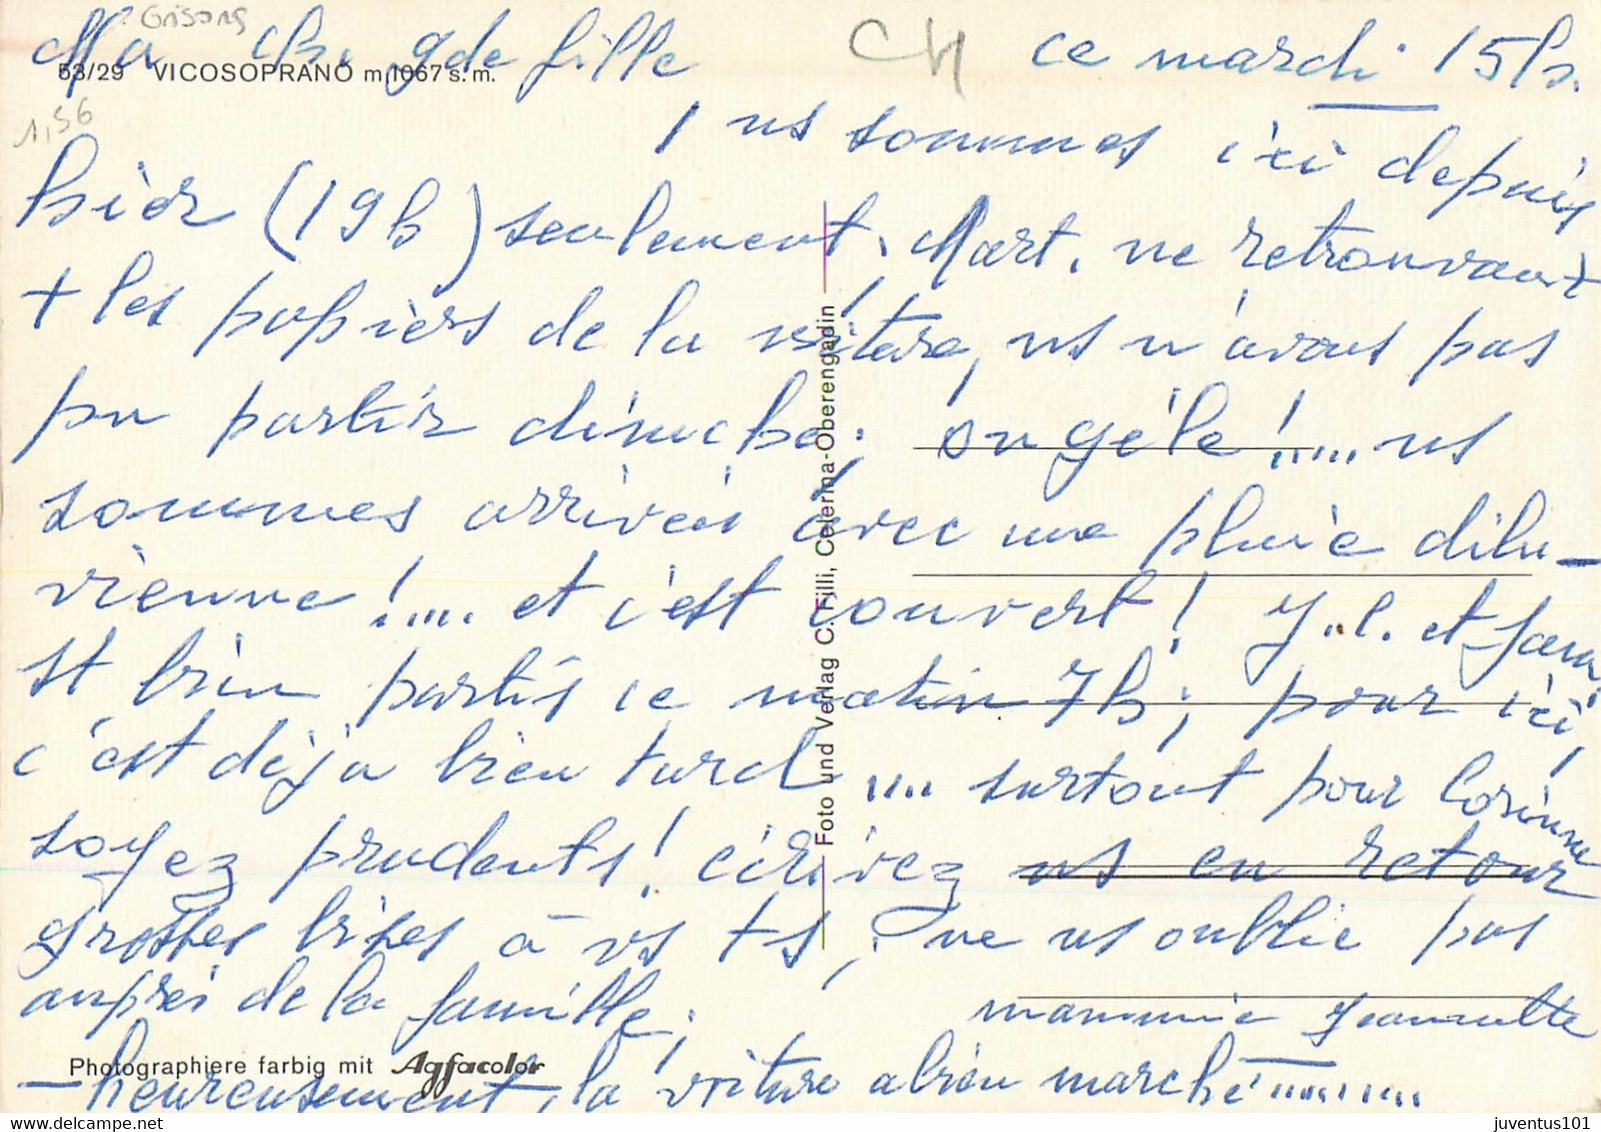 Grisons
Ma ch. gde fille CH ce mardi 15h.
53/29 VICOSOPRANO m. 1067 s. m.
1,56
ns sommes ici depuis
hier (19h) seulement, Mart. ne retrouvant
+ les papiers de la voiture, ns n'avons pas
pu partir dimche; on gèle!.... ns
sommes arrivés avec une pluie dilu-
vienne!.... et c'est couvert! J.L. et
st bien partis ce matin 7h; pour ici,
c'est déjà bien tard .... surtout pour Corinne
soyez prudents! écrivez ns en retour
grosses bises à vs ts, ne ns oublie pas
auprès de la famille; mammie Jeannette
Photographiere farbig mit Agfacolor
- heureusement, la voiture a bien marché.........
Foto und Verlag C. Filli, Celerina-Oberengadin
delcampe.net
juventus101